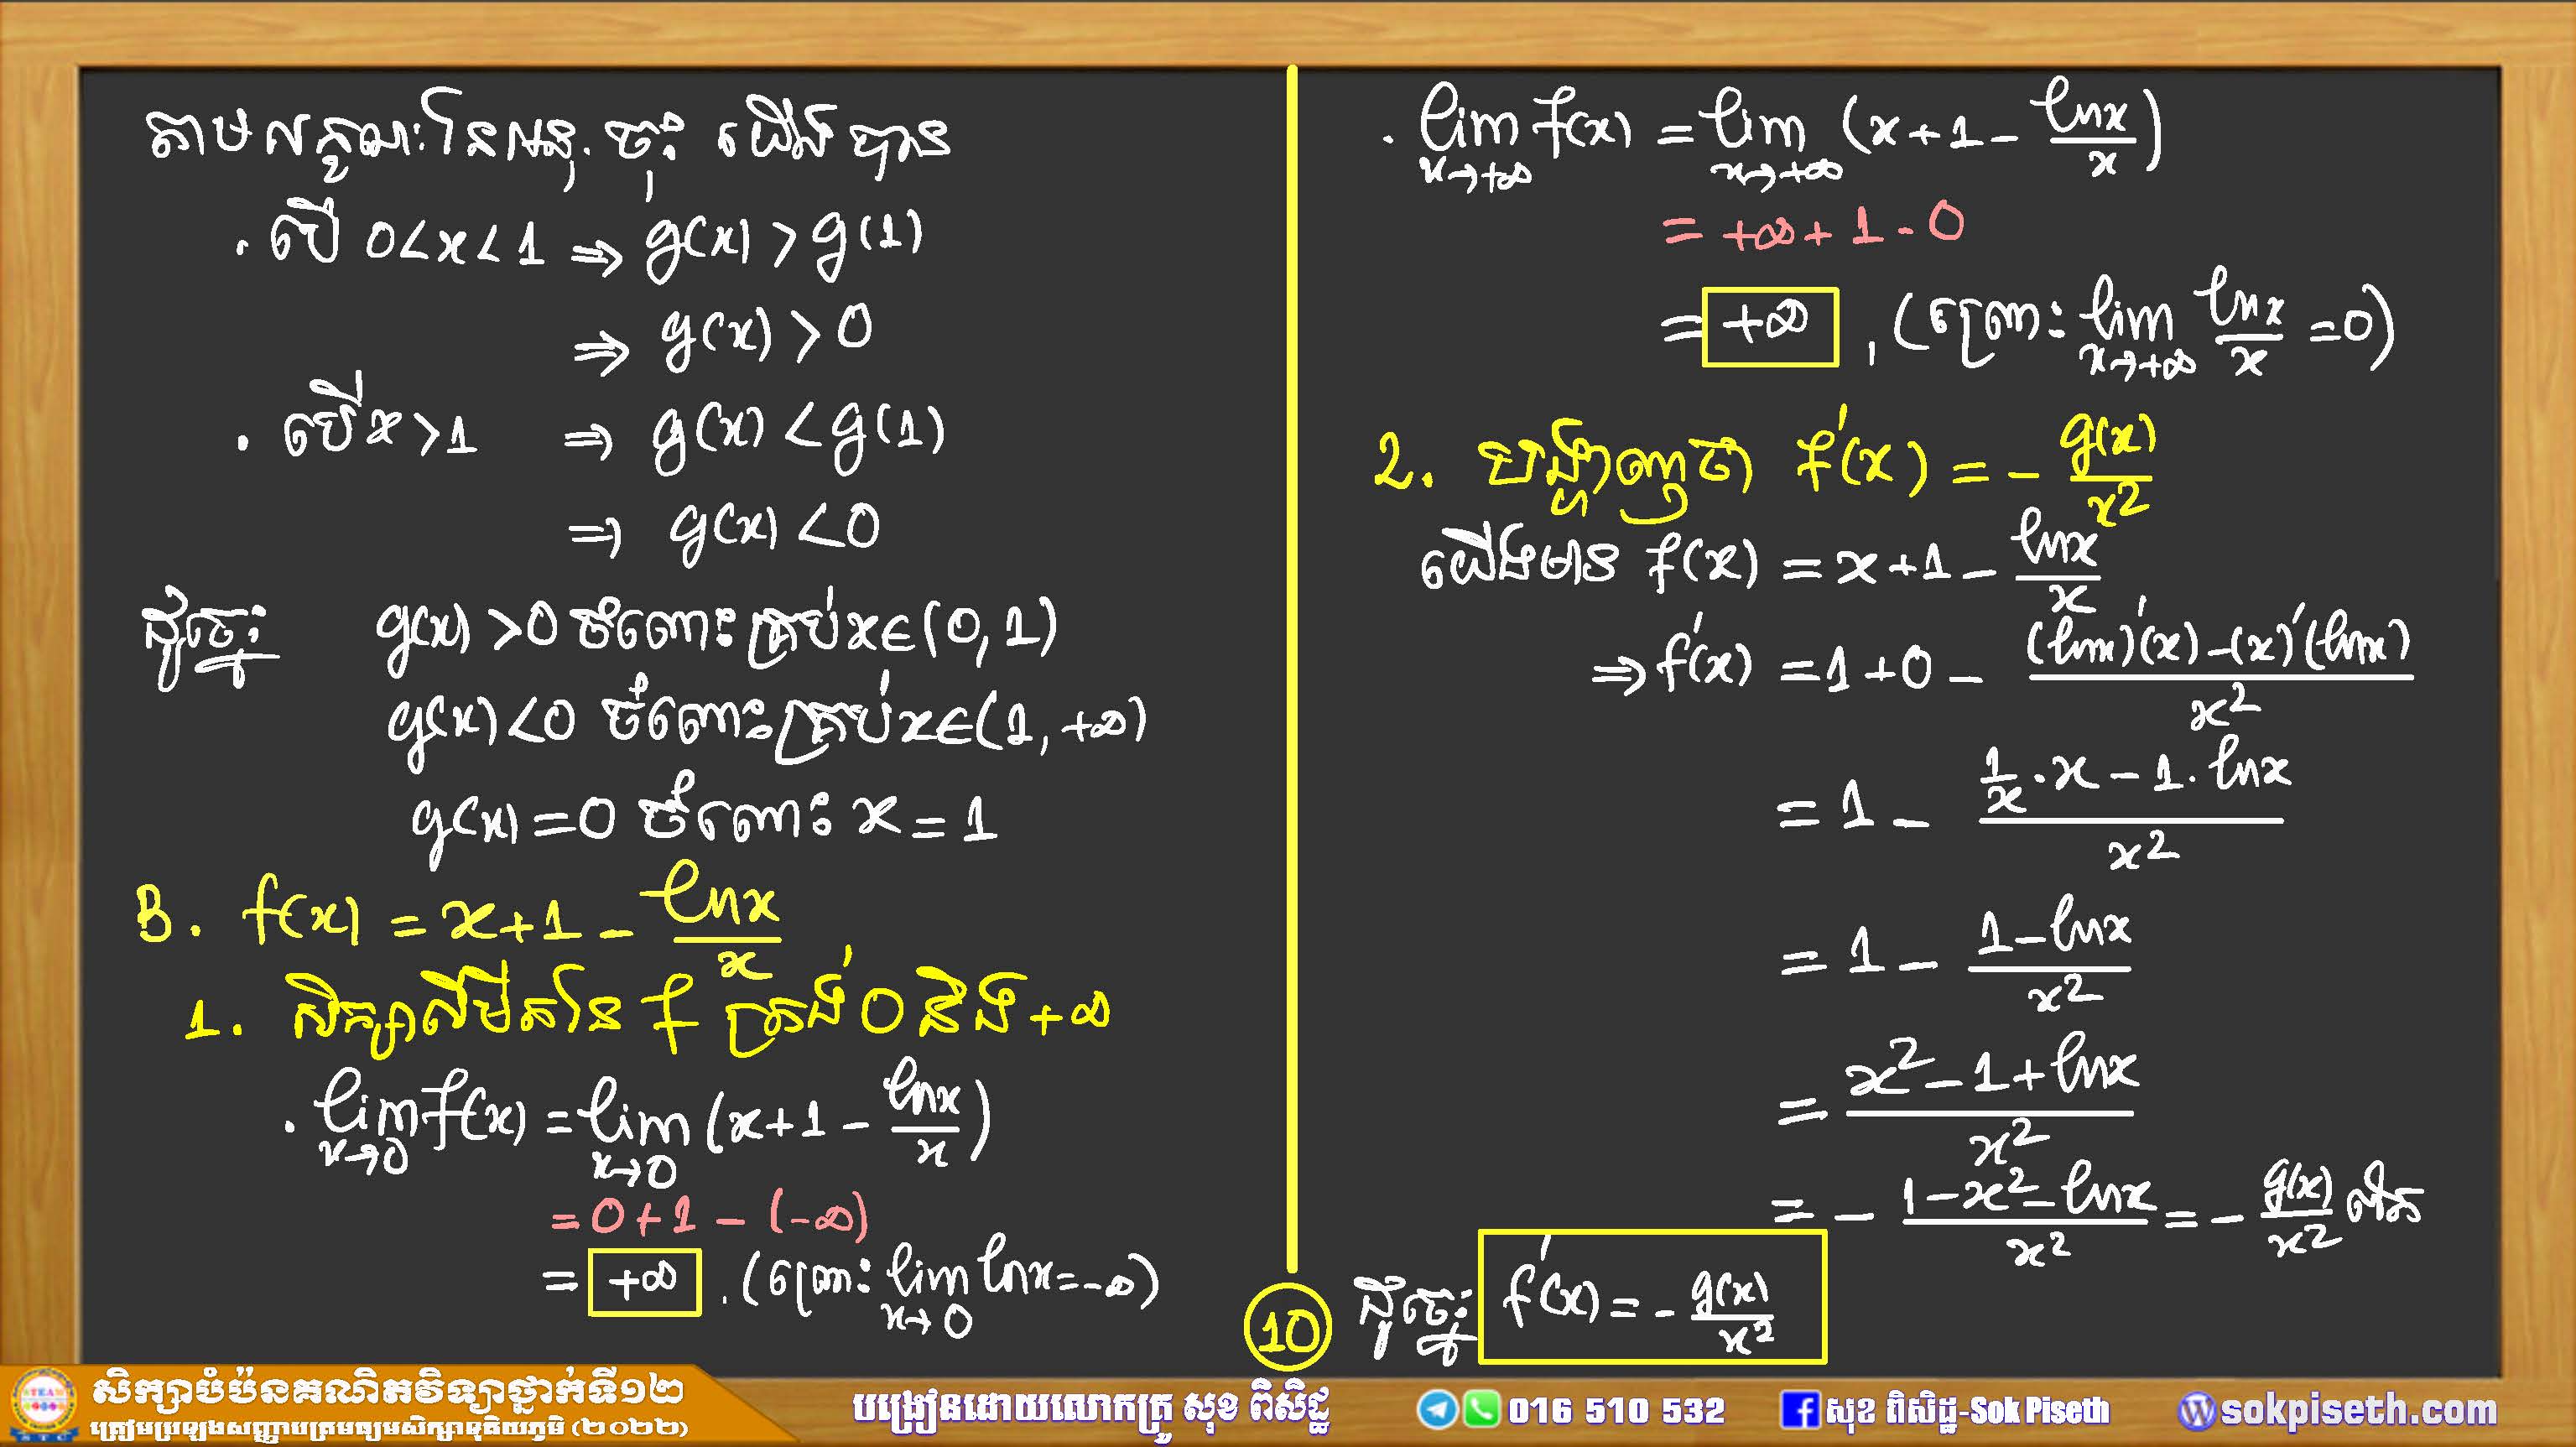 តាមលក្ខណៈនៃអនុ. ចុះ យើងបាន
. បើ 0<x<1 ⇒ g(x) > g(1)
⇒ g(x) > 0
. បើ x>1 ⇒ g(x) < g(1)
⇒ g(x) < 0
ដូចនេះ g(x) >0 ចំពោះគ្រប់ x∈(0,1)
g(x) <0 ចំពោះគ្រប់ x∈(1,+∞)
g(x) =0 ចំពោះ x = 1
B. f(x) = x+1 - lnx/x
1. សិក្សាលីមីតនៃ f ត្រង់ 0 និង +∞
. lim x→0 f(x) = lim x→0 (x+1 - lnx/x)
= 0+1 - (-∞)
= +∞ , (ព្រោះ lim x→0 lnx = -∞)
. lim x→+∞ f(x) = lim x→+∞ (x+1 - lnx/x)
= +∞ + 1 - 0
= +∞ , (ព្រោះ lim x→+∞ lnx/x = 0)
2. បង្ហាញថា f'(x) = - g(x)/x²
យើងមាន f(x) = x+1 - lnx/x
⇒ f'(x) = 1+0 - ((lnx)'(x) - (x)'(lnx))/x²
= 1 - (1/x · x - 1 · lnx)/x²
= 1 - (1-lnx)/x²
= (x² - 1 + lnx)/x²
= - (1-x²-lnx)/x² = - g(x)/x² ពិត
ដូចនេះ f'(x) = - g(x)/x²
10
សិក្សាបំប៉នគណិតវិទ្យាថ្នាក់ទី១២
ត្រៀមប្រឡងសញ្ញាបត្រមធ្យមសិក្សាទុតិយភូមិ (២០២២)
បង្រៀនដោយលោកគ្រូ សុខ ពិសិដ្ឋ
016 510 532
សុខ ពិសិដ្ឋ-Sok Piseth
sokpiseth.com